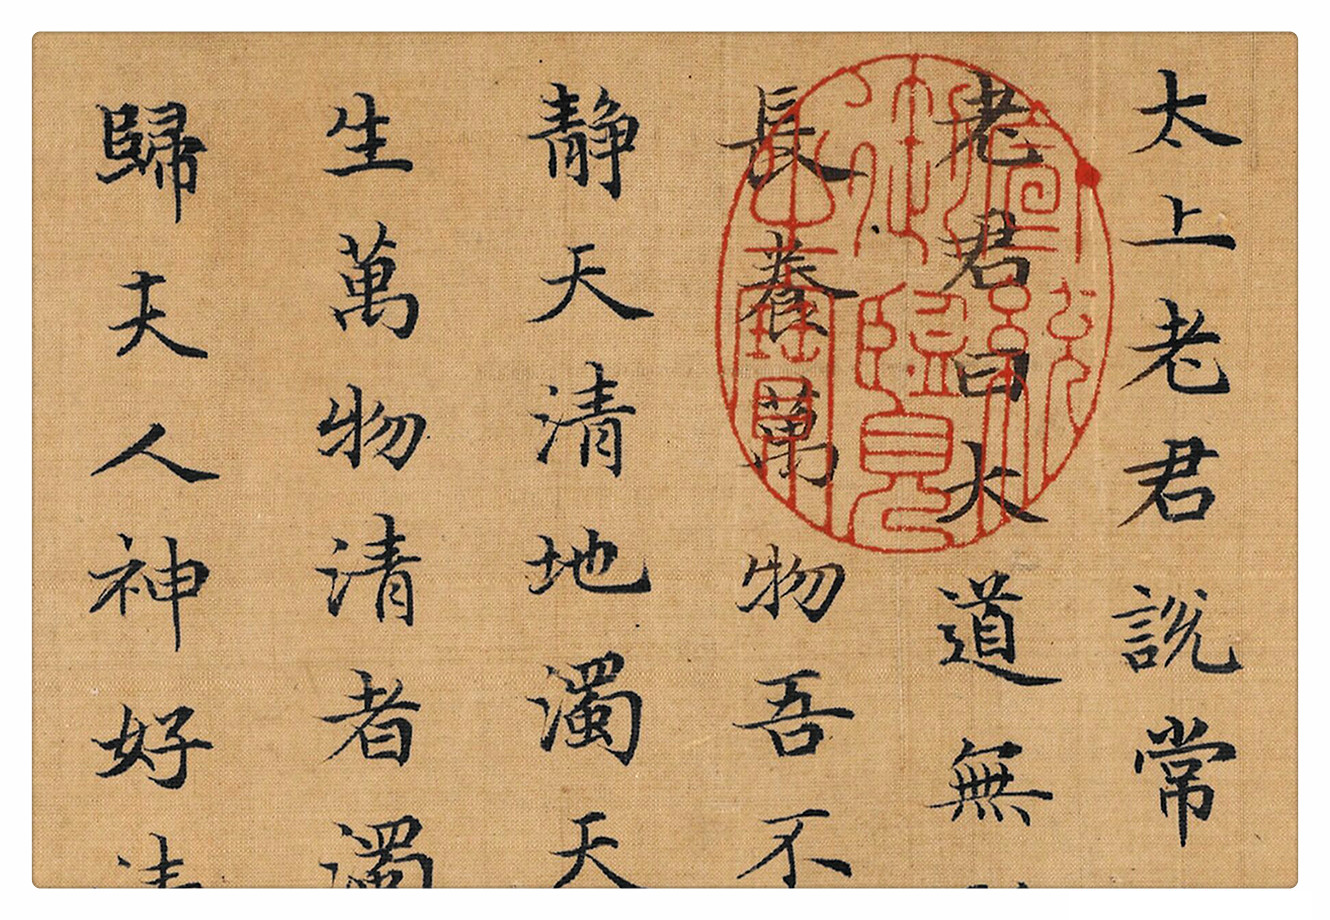 太上老君說常
老君曰大道無
長養萬物吾不
静天清地濁天
生萬物清者濁
歸夫人神好
宣統御覽之寶